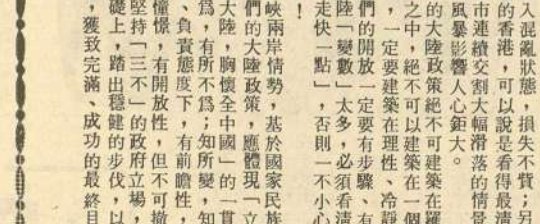 入混亂狀態，損失不貲；另
的香港，可以說是看得最清
市連續交割大幅滑落的情景
風暴影響人心鉅大。
的大陸政策絕不可建築在羅
之中，絕不可以建築在一個
，一定要建築在理性、冷靜
們的開放一定要有步驟、有
陸「變數」太多，必須看清
走快一點」，否則一不小心
！
峽兩岸情勢，基於國家民族
們的大陸政策，應體現「立
大陸，胸懷全中國」的一貫
為，有所不為；知所變，知
、負責態度下，有前瞻性，
憧憬，有開放性，但不可撤
堅持「三不」的政府立場，
礎上，踏出穩健的步伐，以
，獲致完滿、成功的最終目